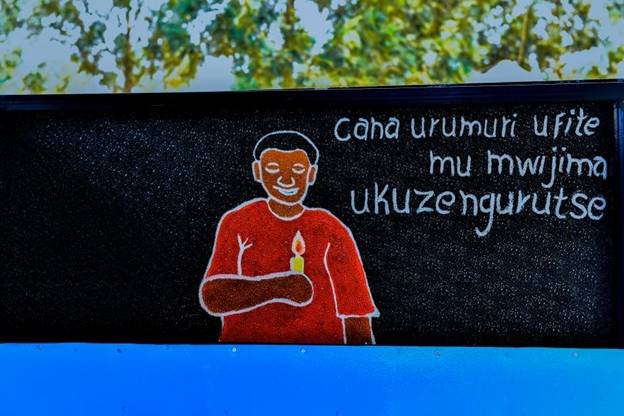 cana urumuri ufite
mu mwijima
ukuzengurutse